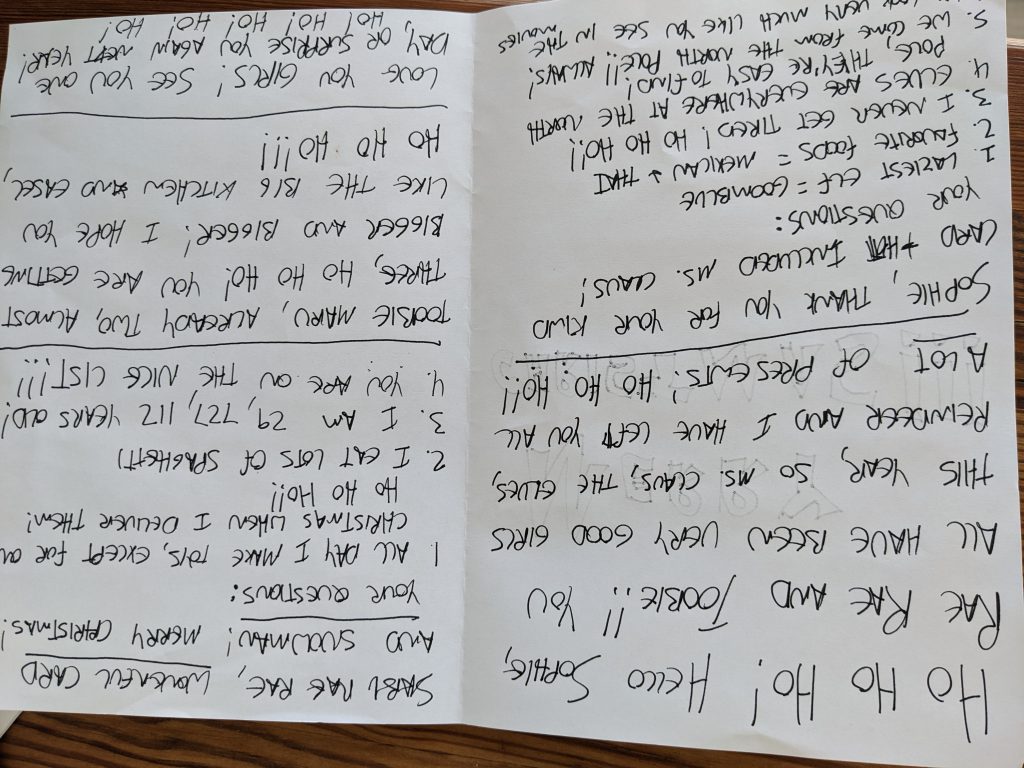 HO HO HO! HELLO SOPHIE,
RAE RAE AND TOOBIE!! YOU
ALL HAVE BEEN VERY GOOD GIRLS
THIS YEAR, SO MS. CLAUS, THE ELVES,
REINDEER AND I HAVE LEFT YOU ALL
A LOT OF PRESENTS! HO HO HO!!
SOPHIE, THANK YOU FOR YOUR KIND
CARD THAT INCLUDED MS. CLAUS!
YOUR QUESTIONS:
1. LAZIEST ELF = GOOMBLUE
2. FAVORITE FOODS = MEXICAN + THAI
3. I NEVER GET TIRED! HO HO HO!!
4. ELVES ARE EVERYWHERE AT THE NORTH
POLE, THEY'RE EASY TO FIND!
5. WE COME FROM THE NORTH POLE!!! ALWAYS!
LOOK VERY MUCH LIKE YOU SEE IN THE MOVIES
RAE RAE, WONDERFUL CARD
AND SNOWMAN! MERRY CHRISTMAS!
YOUR QUESTIONS:
1 ALL DAY I MAKE TOYS, EXCEPT FOR ON
CHRISTMAS WHEN I DELIVER THEM!
HO HO HO!!
2. I EAT LOTS OF SPAGHETTI
3. I AM 29, 727, 112 YEARS OLD!
4. YOU ARE ON THE NICE LIST!!!!
TOOBIE MARU, ALREADY TWO, ALMOST
THREE, HO HO HO! YOU ARE GETTING
BIGGER AND BIGGER! I HOPE YOU
LIKE THE BIG KITCHEN AND EASEL,
HO HO HO!!!!
LOVE YOU GIRLS! SEE YOU ONE
DAY, OR SURPRISE YOU AGAIN NEXT YEAR!
HO! HO! HO! HO! HO!